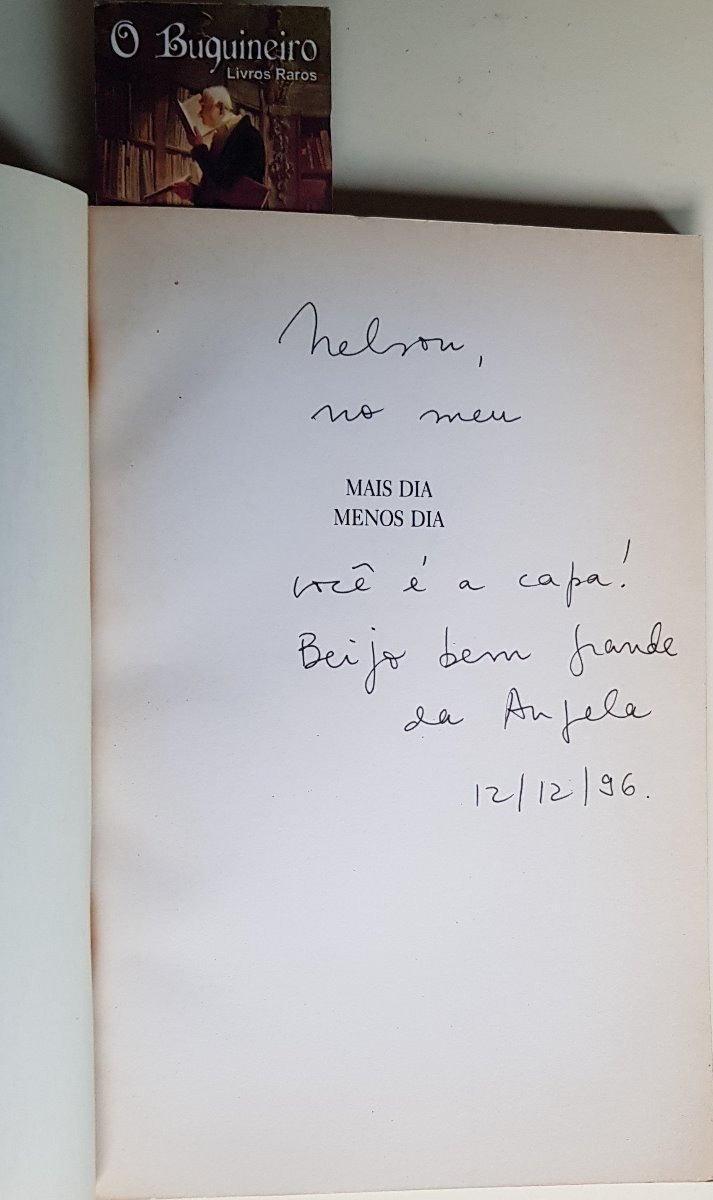 O Buquineiro
Livros Raros
Nelson,
no meu
MAIS DIA
MENOS DIA
você é a capa!
Beijo bem grande
da Angela
12/12/96.